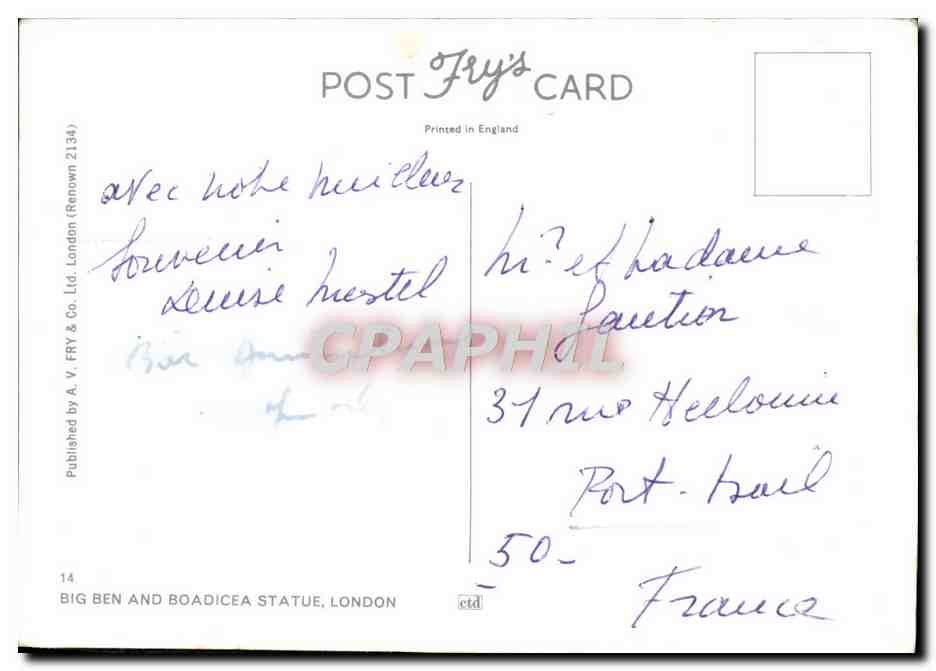 POST Fry's CARD
Printed in England
Published by A. V. FRY & Co. Ltd. London (Renown 2134)
avec notre meilleur
Souvenir
Denise
Mr et Madame
Gautier
31 rue
Port-bail
50-
France
CPAPHIL
14
BIG BEN AND BOADICEA STATUE, LONDON
ctd